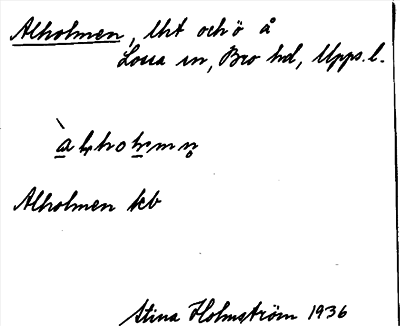 Alholmen, lht och ö å
Lossa sn, Bro hd, Upps. l.
Alholmen kb
Stina Holmström 1936